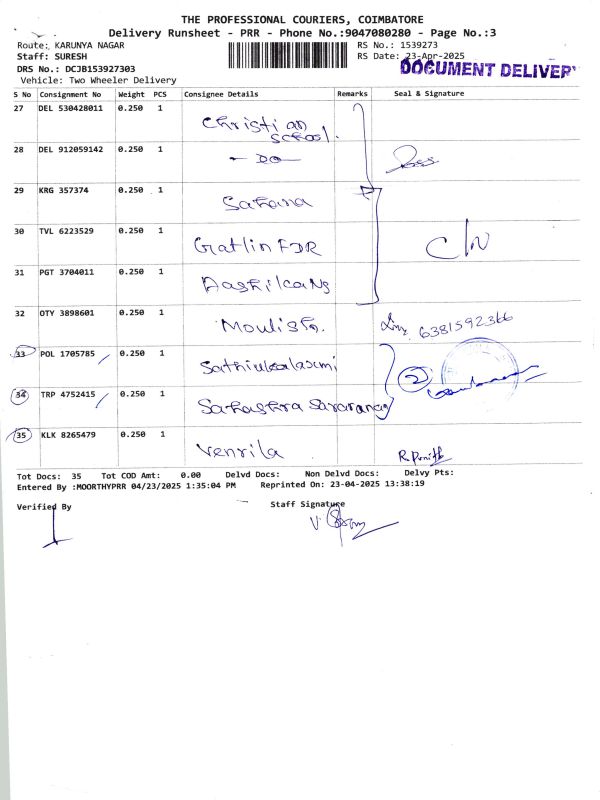 THE PROFESSIONAL COURIERS, COIMBATORE
Delivery Runsheet - PRR - Phone No.:9047080280 - Page No.:3
Route: KARUNYA NAGAR
RS No.: 1539273
Staff: SURESH
RS Date: 23-Apr-2025
DRS No.: DCJB153927303
DOCUMENT DELIVER
Vehicle: Two Wheeler Delivery
S No Consignment No Weight PCS Consignee Details Remarks Seal & Signature
27 DEL 530428011 0.250 1 Christian School.
28 DEL 912059142 0.250 1 - DO -
29 KRG 357374 0.250 1 Sahana
30 TVL 6223529 0.250 1 Gratlin FDR C/N
31 PGT 3704011 0.250 1
32 OTY 3898601 0.250 1 6381592366
33 POL 1705785 0.250 1 2
34 TRP 4752415 0.250 1
35 KLK 8265479 0.250 1 Venrila
Tot Docs: 35 Tot COD Amt: 0.00 Delvd Docs: Non Delvd Docs: Delvy Pts:
Entered By :MOORTHYPRR 04/23/2025 1:35:04 PM Reprinted On: 23-04-2025 13:38:19
Verified By Staff Signature